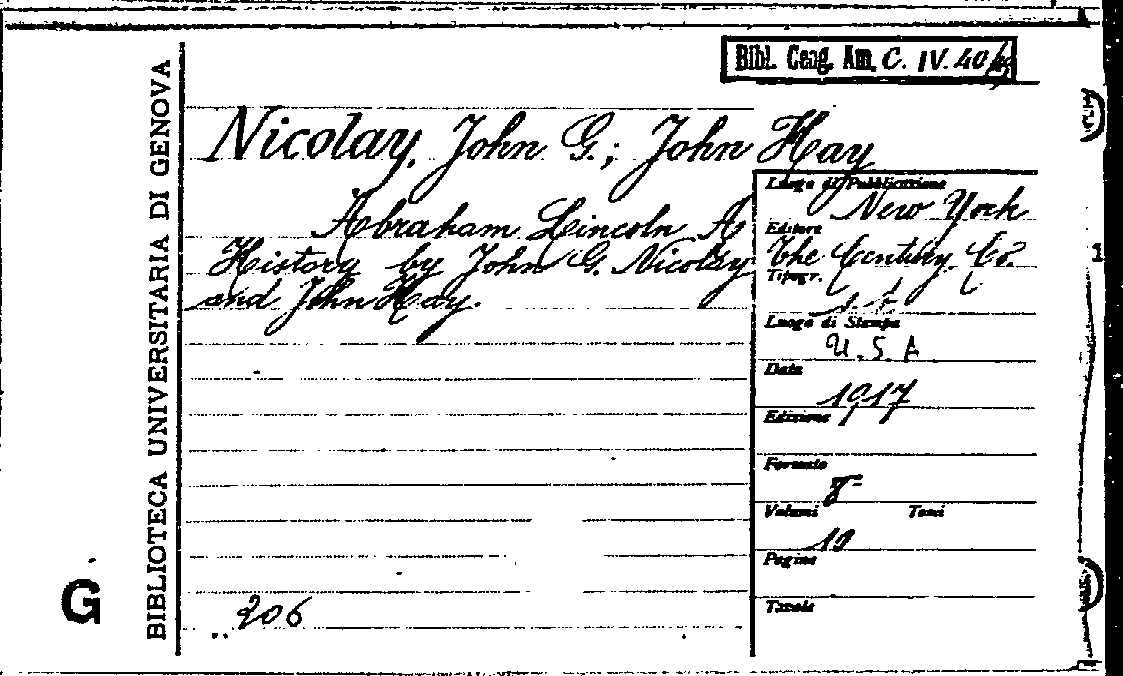 Bibl. Ceog. Am. C. IV. 40
BIBLIOTECA UNIVERSITARIA DI GENOVA
G
Nicolay, John G.; John Hay
Abraham Lincoln A
History by John G. Nicolay
and John Hay.
206
Luogo di Pubblicazione
New York
Editore
The Century Co.
Tipogr.
s. t.
Luogo di Stampa
U. S. A
Data
1917
Edizione
Formato
8º
Volumi Tomi
10
Pagine
Tavole
1